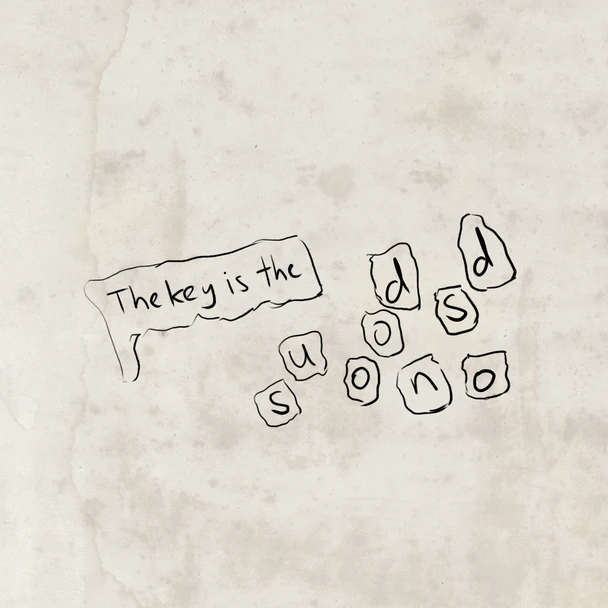 The key is the
d d
o s
u o n o
s